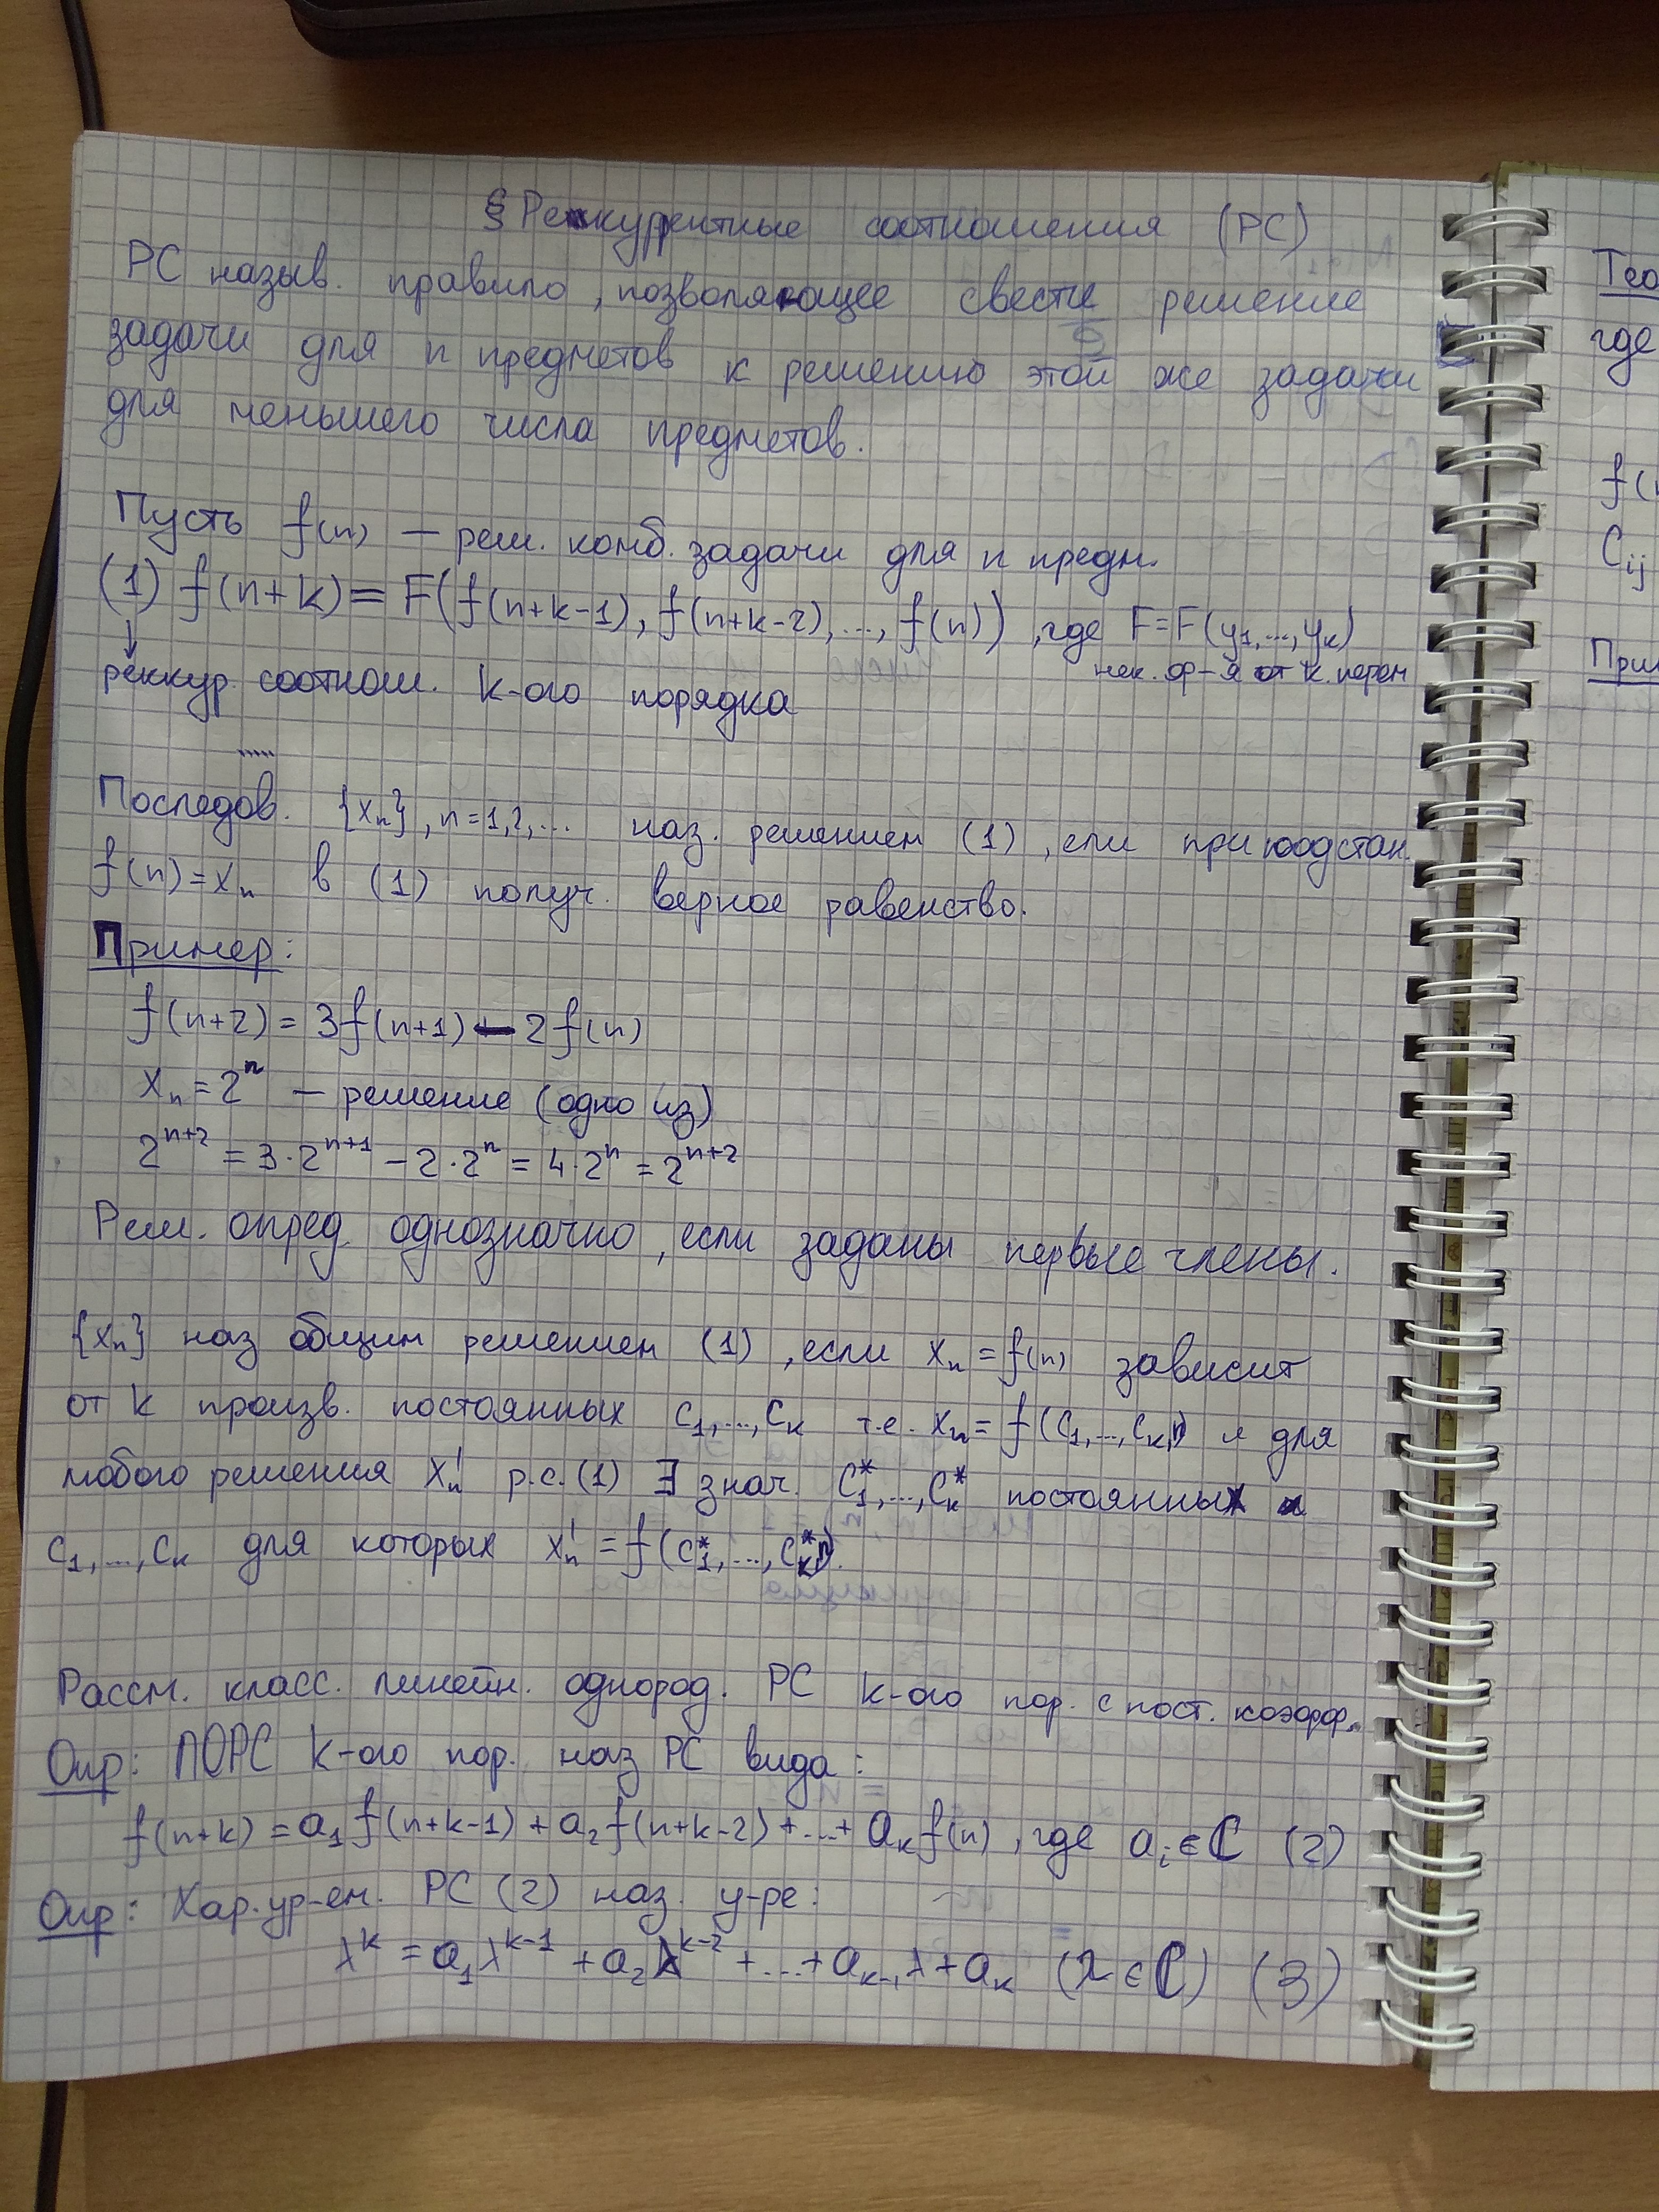 § Реккурентные соотношения (РС)
РС назыв. правило, позволяющее свести решение
задачи для n предметов к решению этой же задачи
для меньшего числа предметов.
Пусть f(n) — реш. комб. задачи для n предм.
(1) f(n+k) = F(f(n+k-1), f(n+k-2), ..., f(n)), где F=F(y₁,...,yₖ)
↓
нек. ф-я от k перем
реккур. соотнош. k-ого порядка
Последов. {xₙ}, n=1,2,... наз. решением (1), если при подстан.
f(n)=xₙ в (1) получ. верное равенство.
Пример:
f(n+2) = 3f(n+1) - 2f(n)
xₙ = 2ⁿ — решение (одно из)
2ⁿ⁺² = 3·2ⁿ⁺¹ - 2·2ⁿ = 4·2ⁿ = 2ⁿ⁺²
Реш. опред. однозначно, если заданы первые члены.
{xₙ} наз общим решением (1), если xₙ = f(n) зависит
от k произв. постоянных c₁,...,cₖ т.е. xₙ = f(c₁,...,cₖ,n) и для
любого решения xₙ' р.с.(1) ∃ знач. c₁*,...,cₖ* постоянных
c₁,...,cₖ для которых xₙ' = f(c₁*,...,cₖ*,n).
Рассм. класс. линейн. однород. РС k-ого пор. с пост. коэфф.
Опр: ЛОРС k-ого пор. наз РС вида:
f(n+k) = a₁f(n+k-1) + a₂f(n+k-2) + ... + aₖf(n), где aᵢ ∈ ℂ (2)
Опр: Хар. ур-ем. РС (2) наз. у-ре:
λᵏ = a₁λᵏ⁻¹ + a₂λᵏ⁻² + ... + aₖ₋₁λ + aₖ (λ ∈ ℂ) (3)
Тео
где
f(
Cᵢⱼ
При